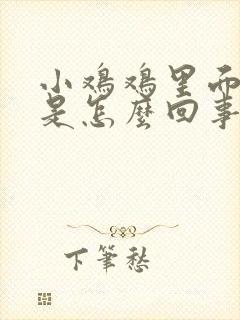 小鸡鸡里面
是怎麼回事
下筆愁